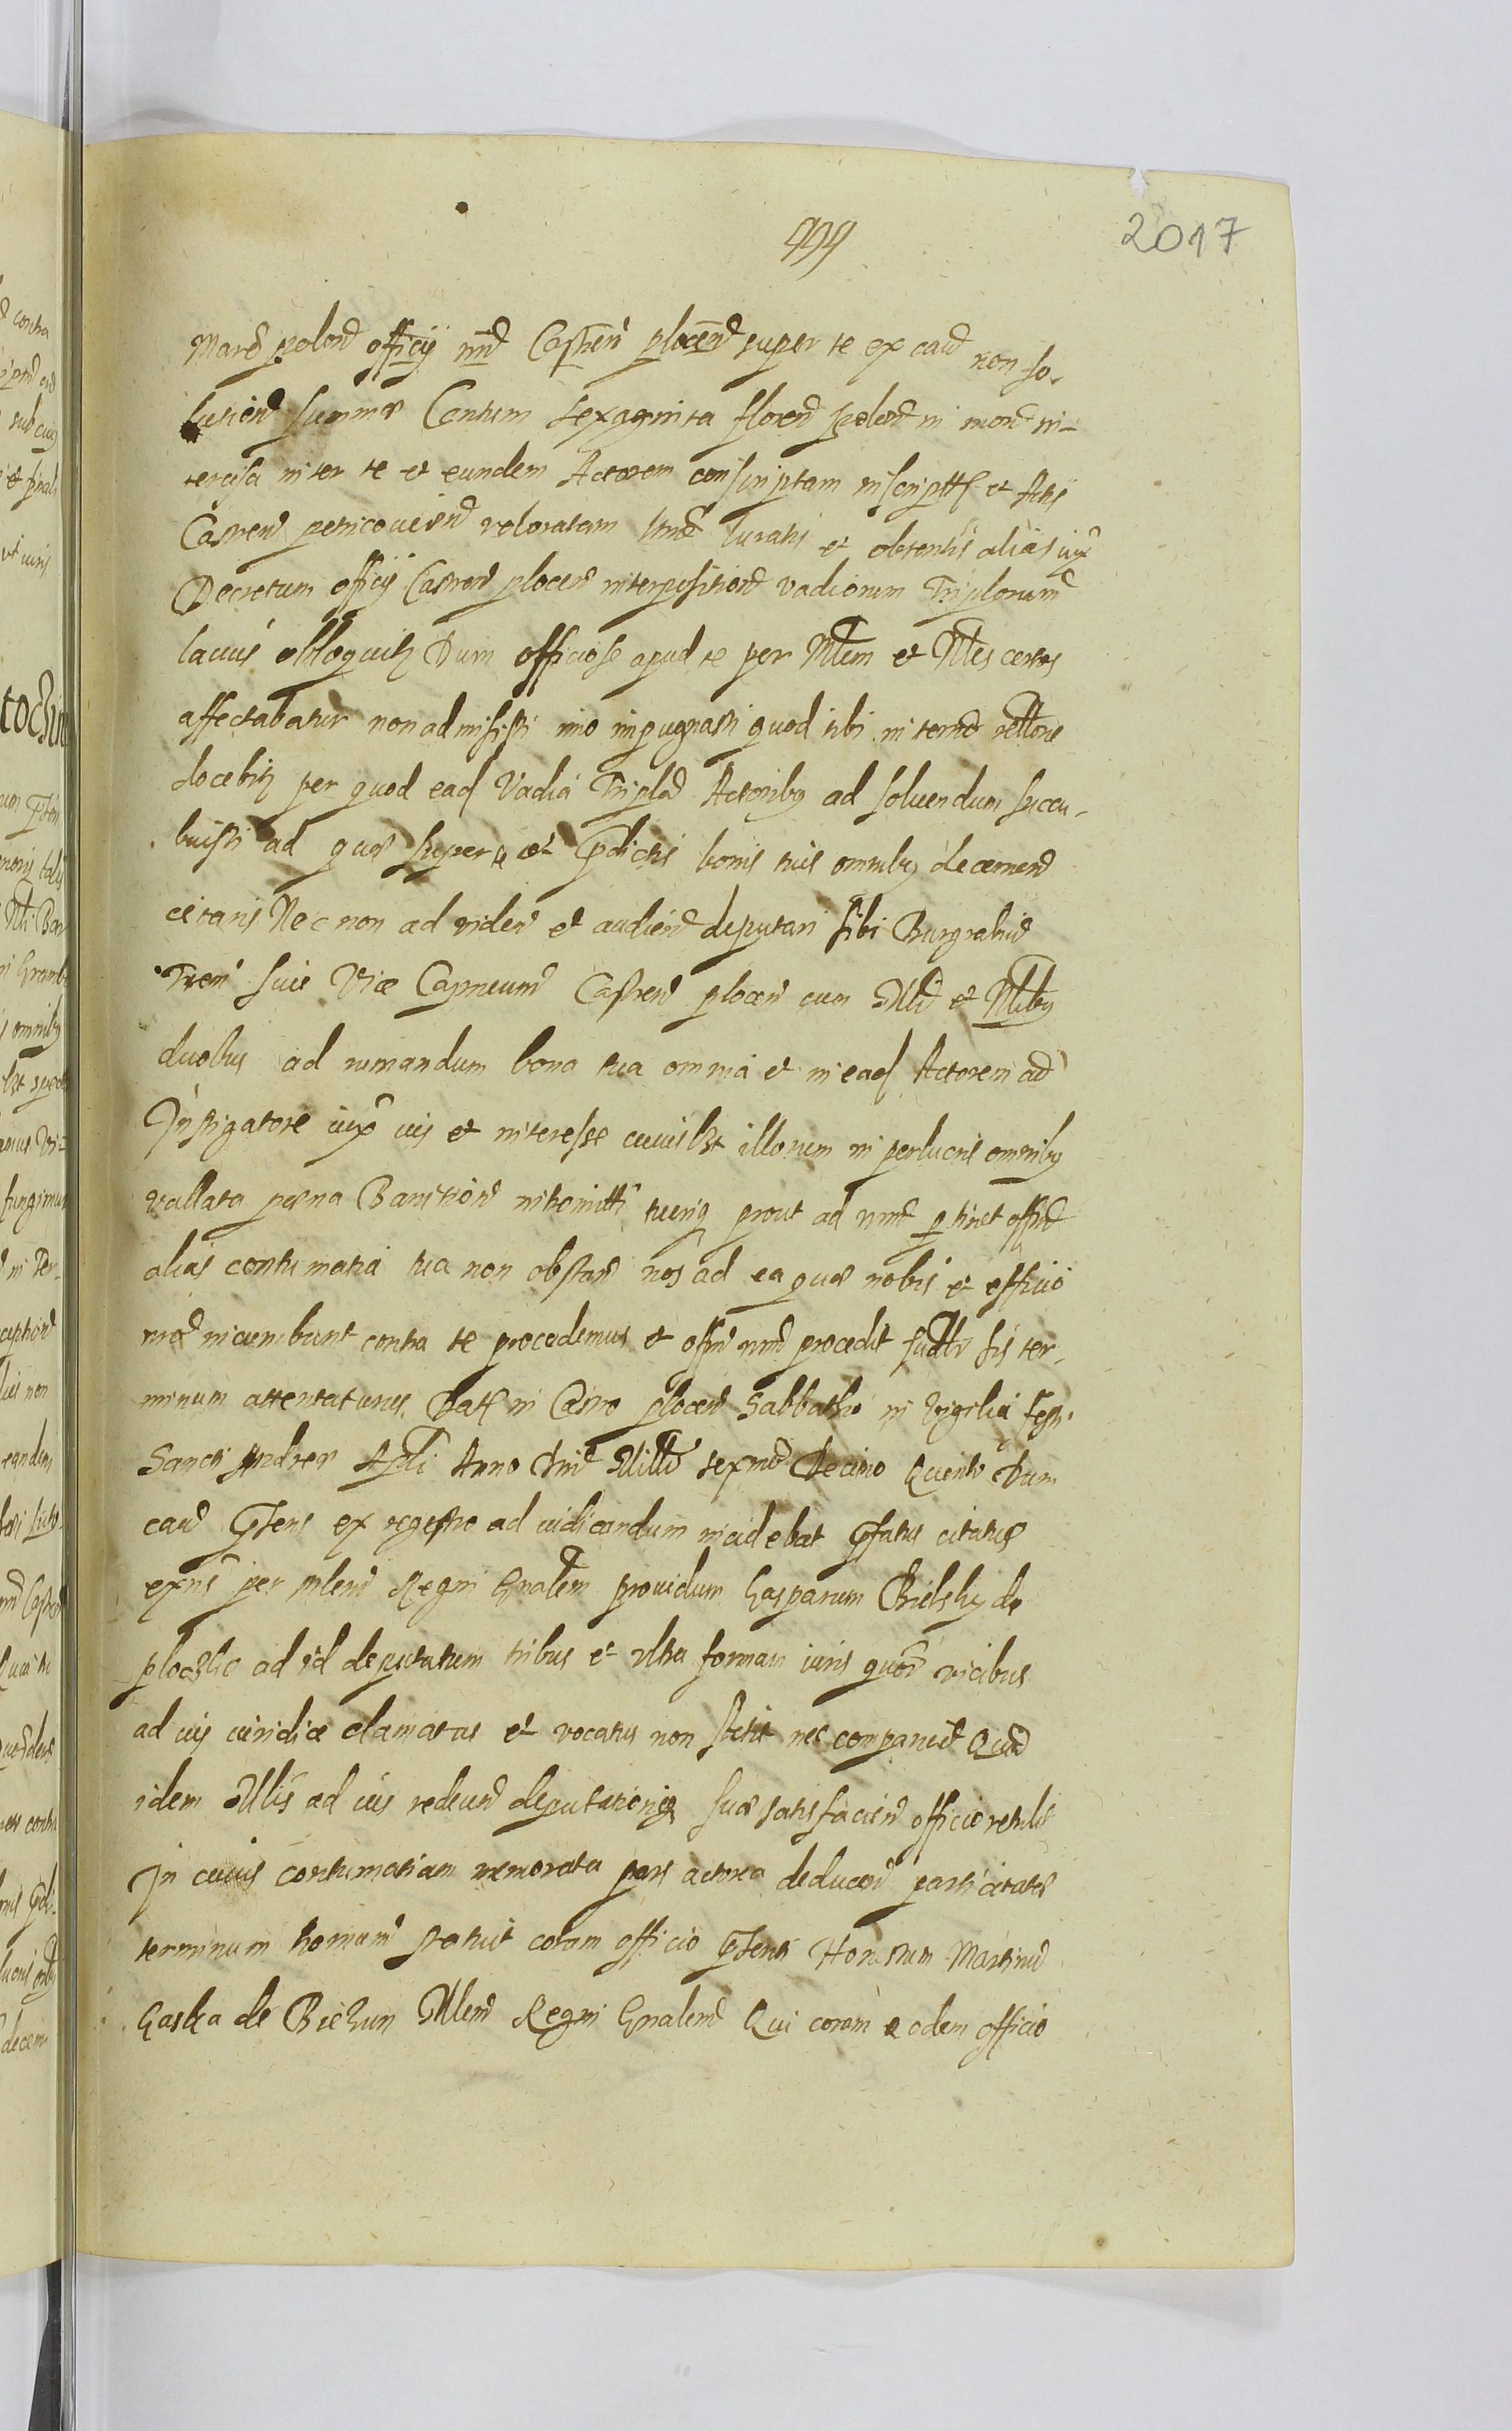 999
2017
Marc polon officij nrid Castren plocen super te ex caud non so-
lution summæ Centum sexaginta floren polon in mone in-
tercisa inter te et eundem Actorem conscriptam inscriptt et Actis
Castren roboratam Iuratis et obtentis alias iux
Decretum officij Castren plocen interposition vadiorum Triplorum
lacius Dum officiose apud te per Mlem et Nles certos
affectabatur non admisisti imo impugnasti quod tibi in termo
docebitz per quod ead Vadia Tripla Actoribus ad soluendum succu-
buisti ad quæ super te et pdictis bonis tuis omnibus decernen
citaris Nec non ad viden et audien deputari sibi Burgrabiu
siue Vice Capneum Castren plocen cum Mli et Nlibus
duobus ad bona tua omnia et in ead Actorem ad
Instigatore iux ius et interesse cuiuslibt illorum in perlucris omnibus
vallata pœna Banition intromitti tuerig prout ad nrid ptinet offid
alias contumatia tua non obstan nos ad ea quæ nobis et officio
nrō incumbunt contra te procedemus et offid nrid procedit sis ter-
minum attentaturus. Dat in Castro plocen Sabbatho in vigilia festi
Sancti Andreæ Apli Anno Dni Mill sexmo Decimo Quinto Dum
caud pns ex regestro ad iudicandum incidebat pfatus citatus
exns per Mlem Regni Gnalem prouidum Gasparum Bielsky de
ploczko ad id deputatum tribus et vltra formam iuris quor vicibus
ad ius iuridice clamatus et vocatus non stetit nec comparuit Qud
idem Mlis ad ius redeun deputationiq suæ satisfacien officio retulit
In cuius contumatiam memorata pars actorea deducen parti citatæ
terminum statuit coram officio pnti Honestum Martinu
Gaska de Biehun Mlem Regni Gnalem Qui coram eodem officio